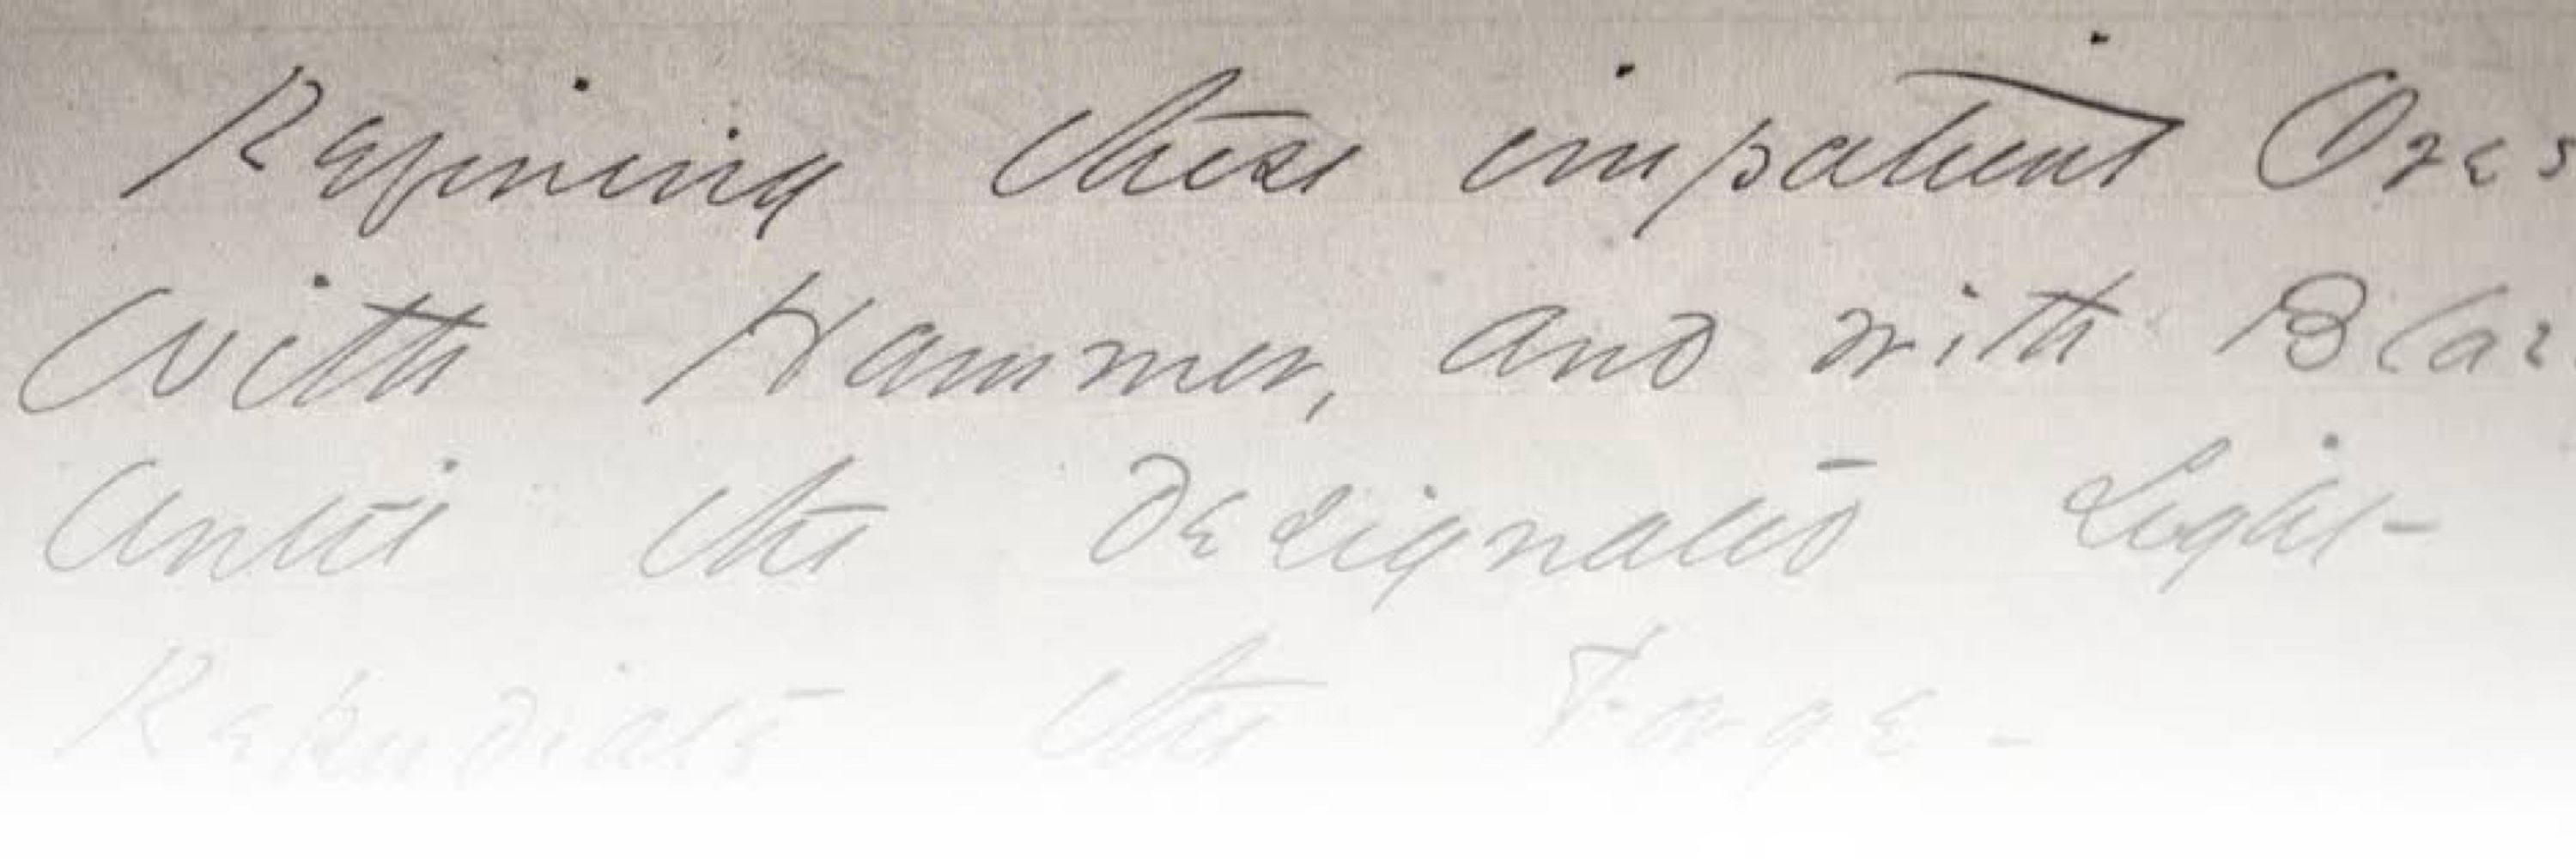 Refining these impatient Ores
With Hammer, and with Blaz
Until the Designated Light -
Repudiate the Forge -